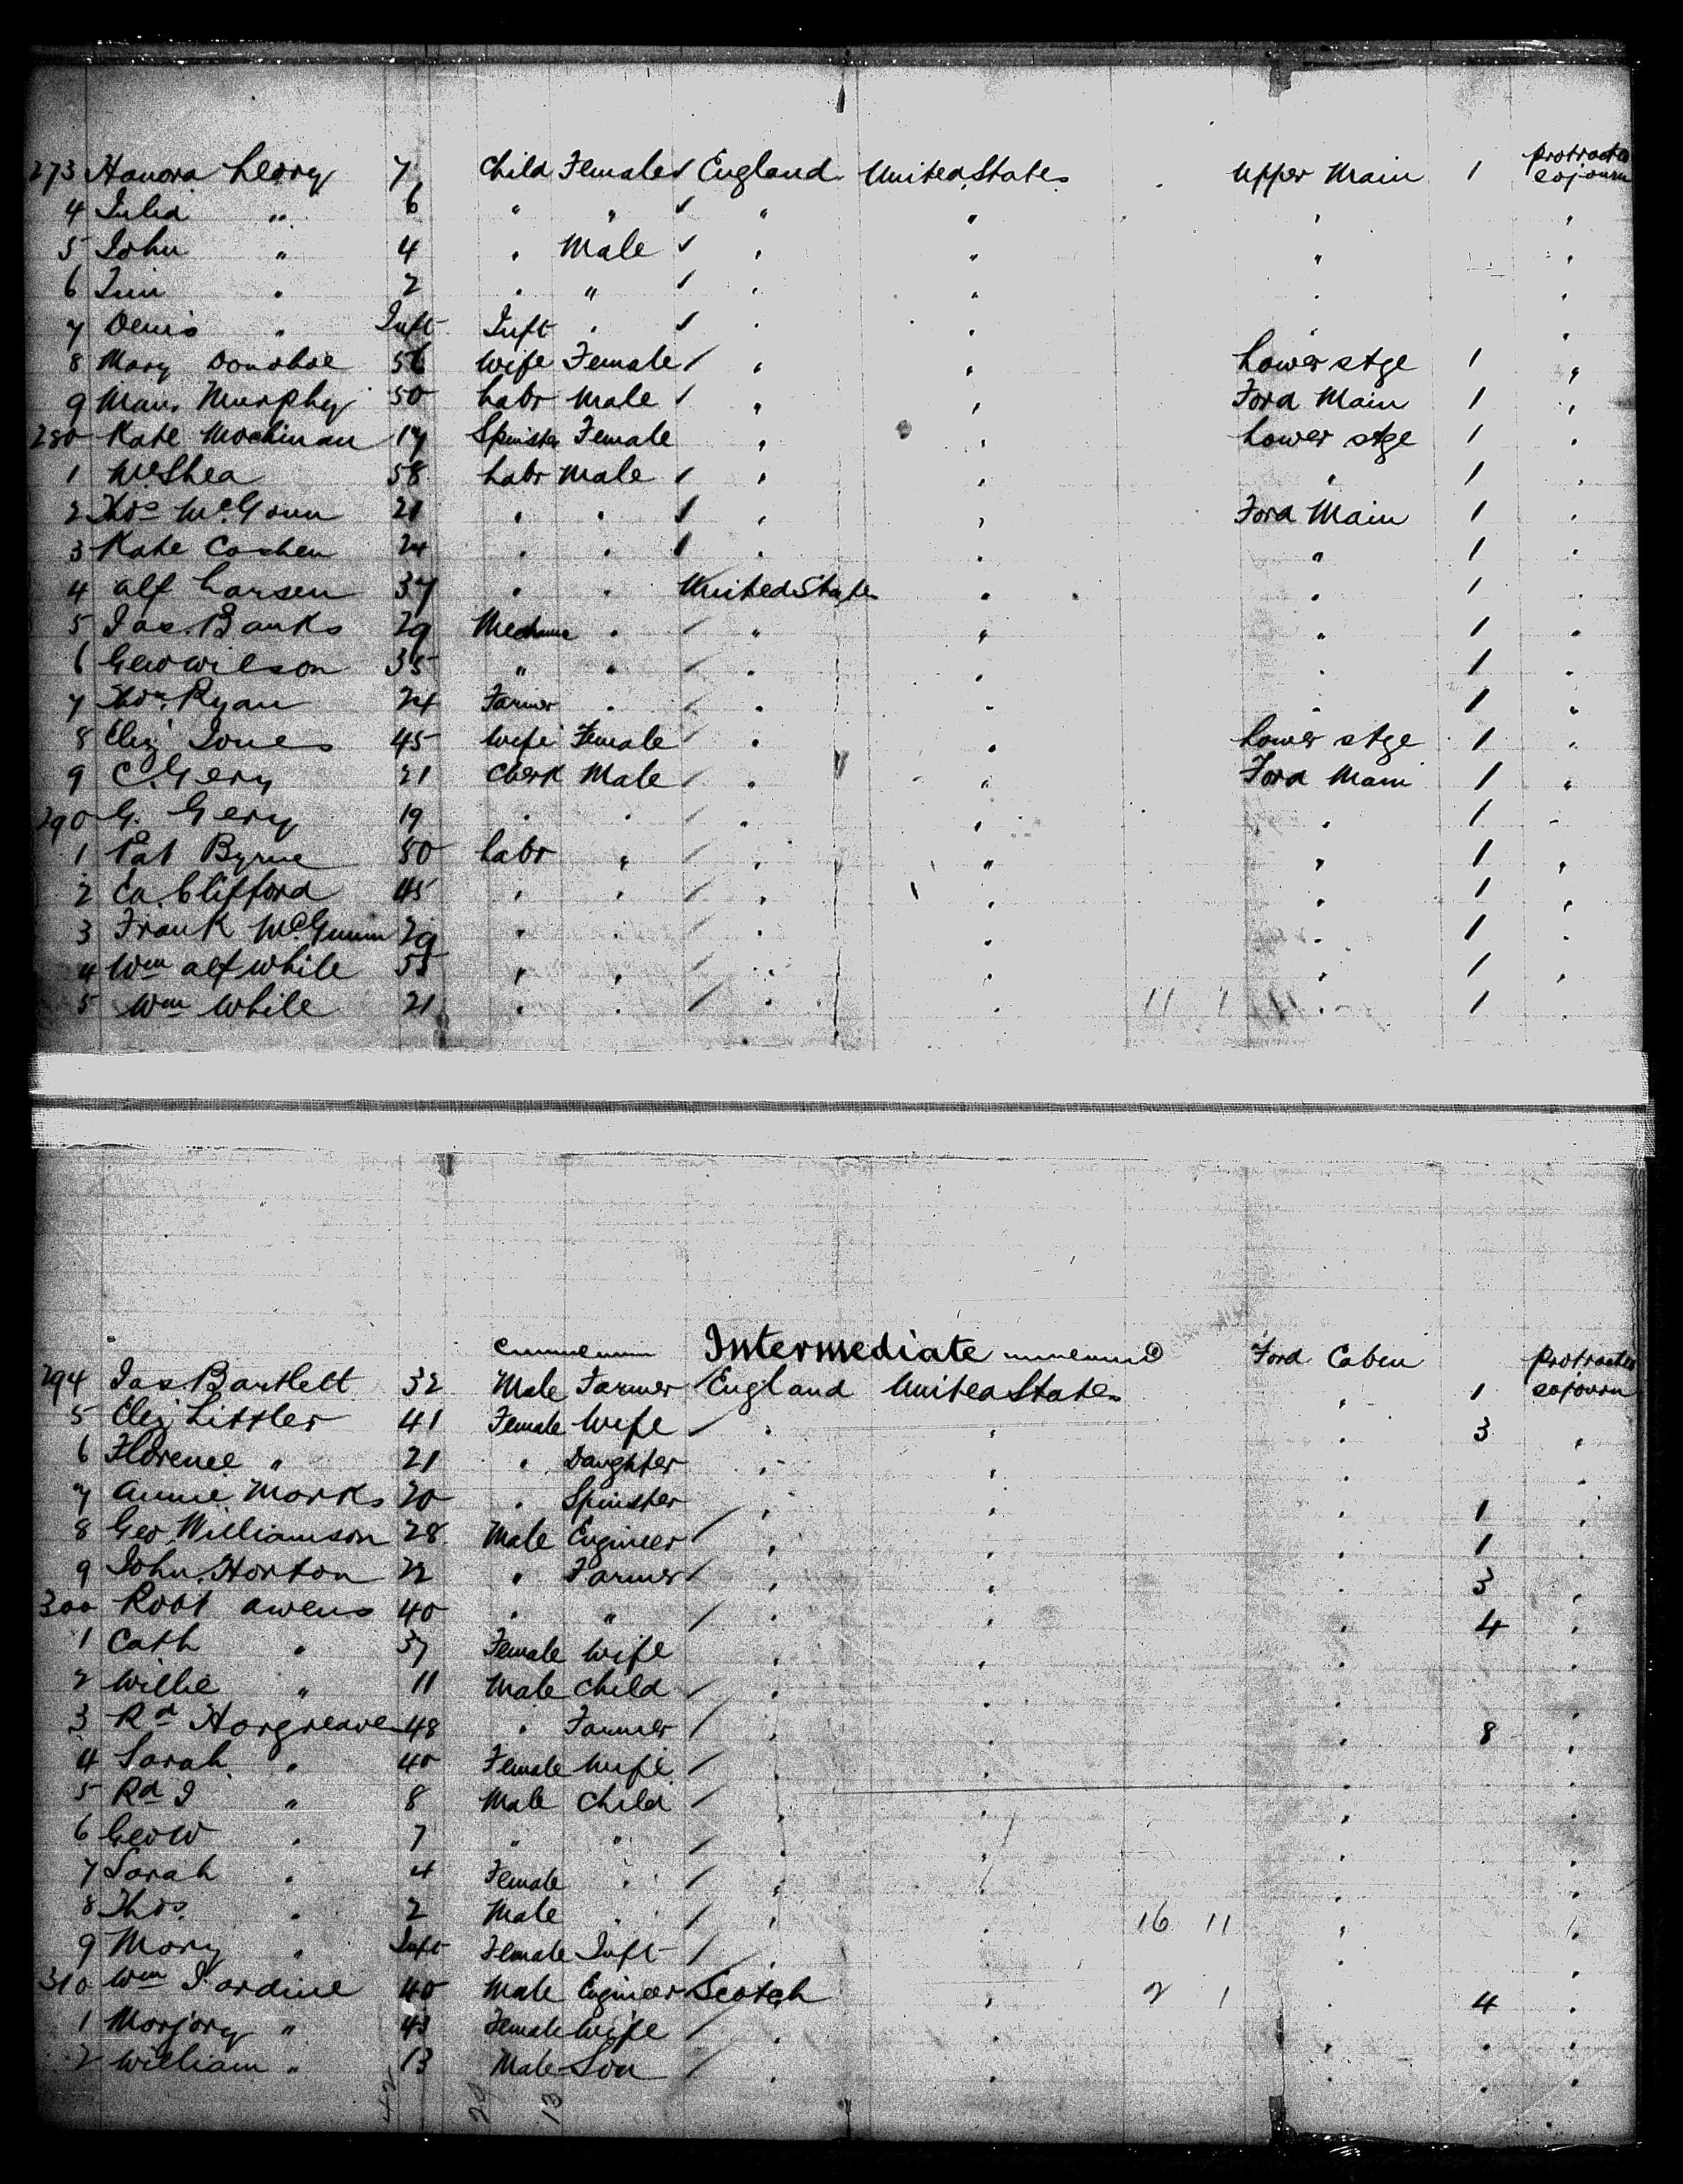 273 Hanora Leary 7 Child Female England United States Upper Main 1 protracted sojourn
4 Julia " 6 " " " " " "
5 John " 4 " Male " " " "
6 Tim " 2 " " " " " "
7 Denis " Inft Inft " " " " "
8 Mary Donohoe 56 Wife Female " " Lower stge 1 "
9 Mau. Murphy 50 Labr Male " " Ford Main 1 "
280 Kate 19 Spinster Female " " Lower stge 1 "
1 McShea 58 Labr Male " " " 1 "
2 Thos McGann 21 " " " " Ford Main 1 "
3 Kate 24 " " " " " 1 "
4 Alf Larsen 37 " " United States " " 1 "
5 Jas. Banks 29 Mechanic " " " " 1 "
6 Geo Wilson 35 " " " " " 1 "
7 Thos. Ryan 24 Farmer " " " " 1 "
8 Eliz Jones 45 Wife Female " " Lower stge 1 "
9 C. Gery 21 Clerk Male " " Ford Main 1 "
290 G. Gery 19 " " " " " 1 "
1 Pat Byrne 50 Labr " " " " 1 "
2 Clifford 45 " " " " " 1 "
3 Frank 29 " " " " " 1 "
4 Wm Alf While 55 " " " " " 1 "
5 Wm While 21 " " " " 11 1 " 1 "
Intermediate Ford Caben protracted
294 Jas Bartlett 32 Male Farmer England United States " 1 sojourn
5 Eliz Littler 41 Female Wife " " " 3 "
6 Florence " 21 " Daughter " " " "
7 Annie Marks 20 " Spinster " " " 1 "
8 Geo. Williamson 28 Male Engineer " " " 1 "
9 John. Horton 22 " Farmer " " " 3 "
300 Robt Owens 40 " " " " " 4 "
1 Cath " 37 Female Wife " " " "
2 Willie " 11 Male Child " " " "
3 Rd Hargreave 48 " Farmer " " " 8 "
4 Sarah " 40 Female Wife " " " "
5 Rd J " 8 Male Child " " " "
6 Geo W " 7 " " " " " "
7 Sarah " 4 Female " " " " "
8 Thos. " 2 Male " " " 16 11 " "
9 Mary " Inft Female Inft " " " "
310 Wm Jardine 40 Male Engineer Scotch " 2 1 " 4 "
1 Marjory " 43 Female Wife " " " "
2 William " 13 Male Son " " " "
42 29 13